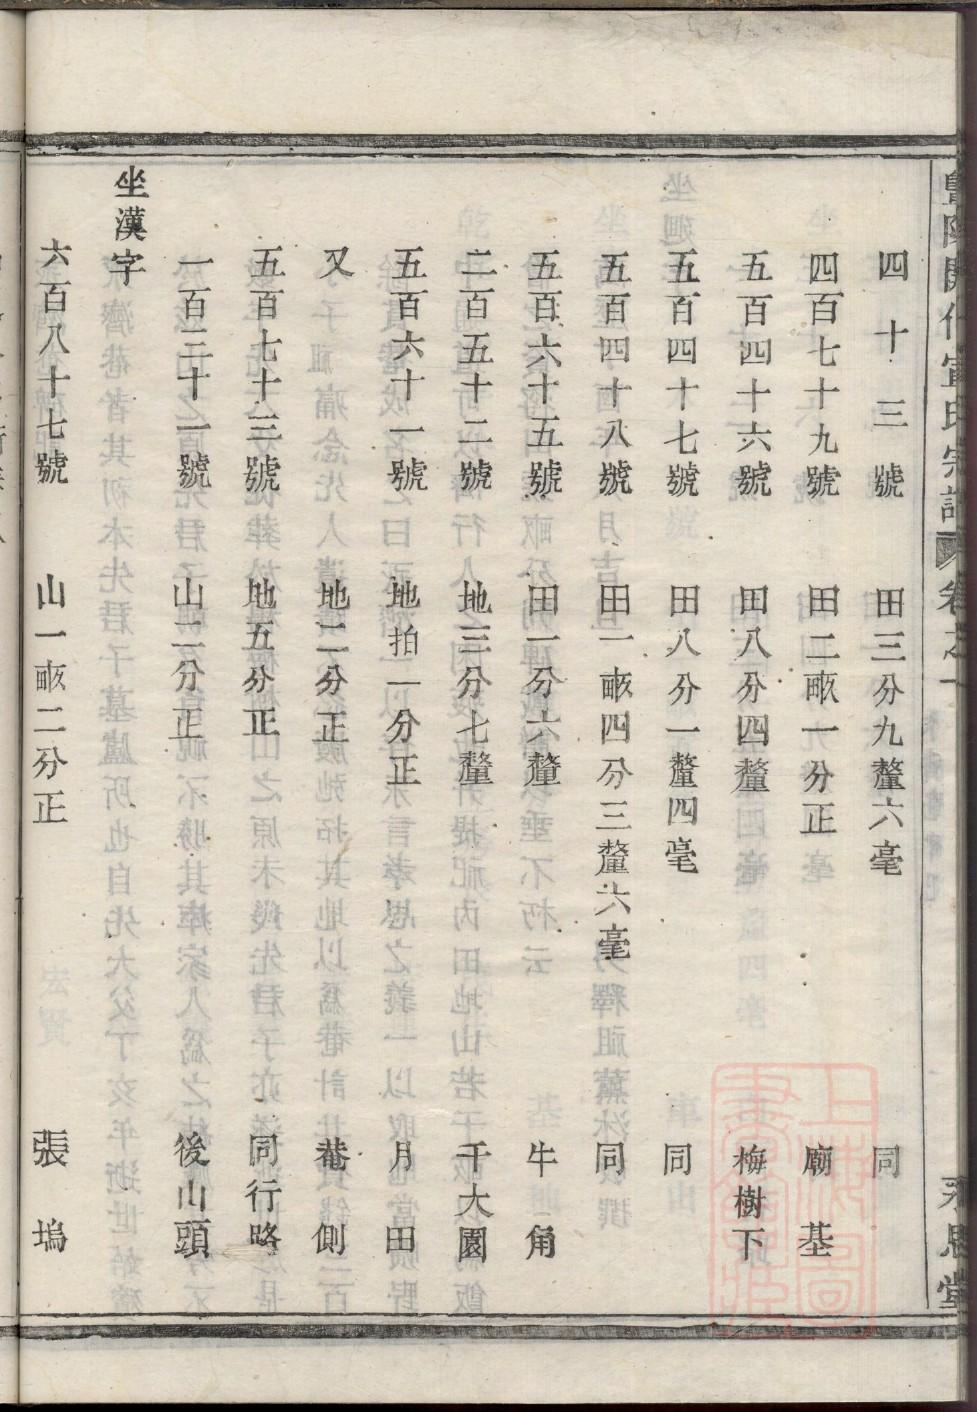 開化宣氏宗譜 卷之一 承恩堂
四十三號 田三分九釐六毫 同
四百七十九號 田二畝一分正 廟基
五百四十六號 田八分四釐 梅樹下
五百四十七號 田八分一釐四毫 同
五百四十八號 田一畝四分三釐六毫 同
五百六十五號 田一分六釐 牛角
二百五十二號 地三分七釐 千大園
五百六十一號 地拍一分正 月田
又 地二分正 菴側
五百七十三號 地五分正 同行路
一百二十一號 山二分正 後山頭
坐漢字
六百八十七號 山一畝二分正 張塢